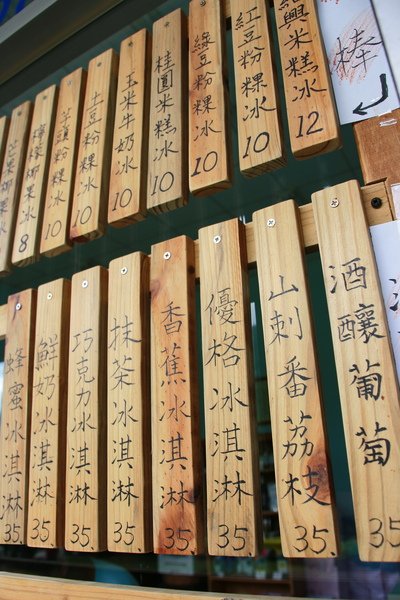 棒
紹興米糕冰 12
紅豆粉粿冰 10
綠豆粉粿冰 10
桂圓米糕冰 10
玉米牛奶冰 10
土豆粉粿冰 10
芋頭粉粿冰 10
檸檬椰果冰 8
椰果冰
酒釀葡萄 35
山刺番荔枝 35.
優格冰淇淋 35
香蕉冰淇淋 35.
抹茶冰淇淋 35.
巧克力冰淇淋 35.
鮮奶冰淇淋 35
蜂蜜冰淇淋 35